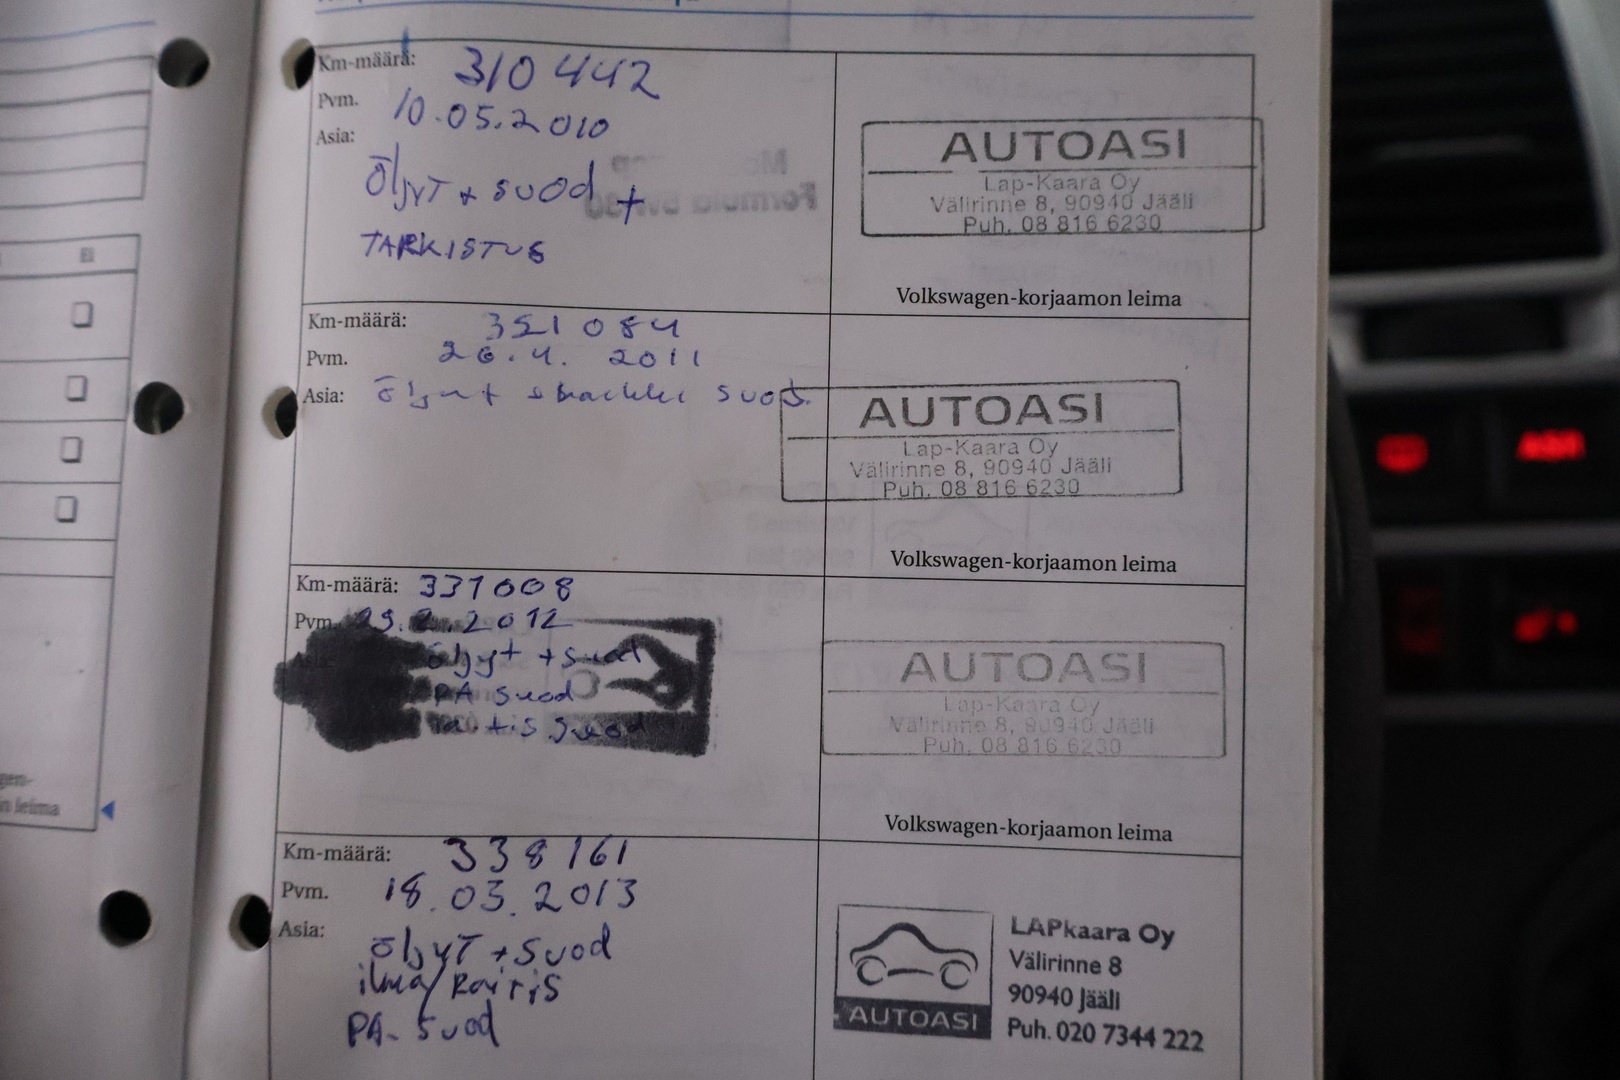 Km-määrä: 310 442
Pvm. 10.05.2010
Asia:
öljyT + suod +
TARKISTUS
AUTOASI
Lap-Kaara Oy
Välirinne 8, 90940 Jääli
Puh. 08 816 6230
Volkswagen-korjaamon leima
Km-määrä: 321 084
Pvm. 26.4. 2011
Asia: öljyt suod.
AUTOASI
Lap-Kaara Oy
Välirinne 8, 90940 Jääli
Puh. 08 816 6230
Volkswagen-korjaamon leima
Km-määrä: 331008
Pvm. 2012
öljyt + suod
PA suod
suod
AUTOASI
Lap-Kaara Oy
Välirinne 8, 90940 Jääli
Puh. 08 816 6230
Volkswagen-korjaamon leima
Km-määrä: 338 161
Pvm. 18.03.2013
Asia:
öljyT + suod
ilma/Raitis
PA-suod
AUTOASI
LAPkaara Oy
Välirinne 8
90940 Jääli
Puh. 020 7344 222
Ei
leima